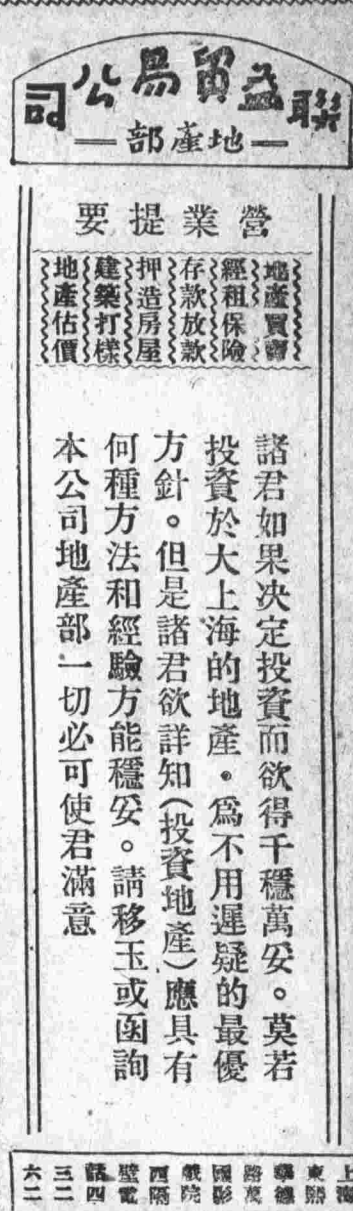 聯益貿易公司
地產部
營業提要
地產買賣
經租保險
存款放款
押造房屋
建築打樣
地產估價
諸君如果決定投資而欲得千穩萬妥。莫若
投資於大上海的地產。為不用遲疑的最優
方針。但是諸君欲詳知(投資地產)應具有
何種方法和經驗方能穩妥。請移玉或函詢
本公司地產部一切必可使君滿意
上海
東熙
華德
路萬
國影
戲院
西隔
壁電
話四
三二
六二